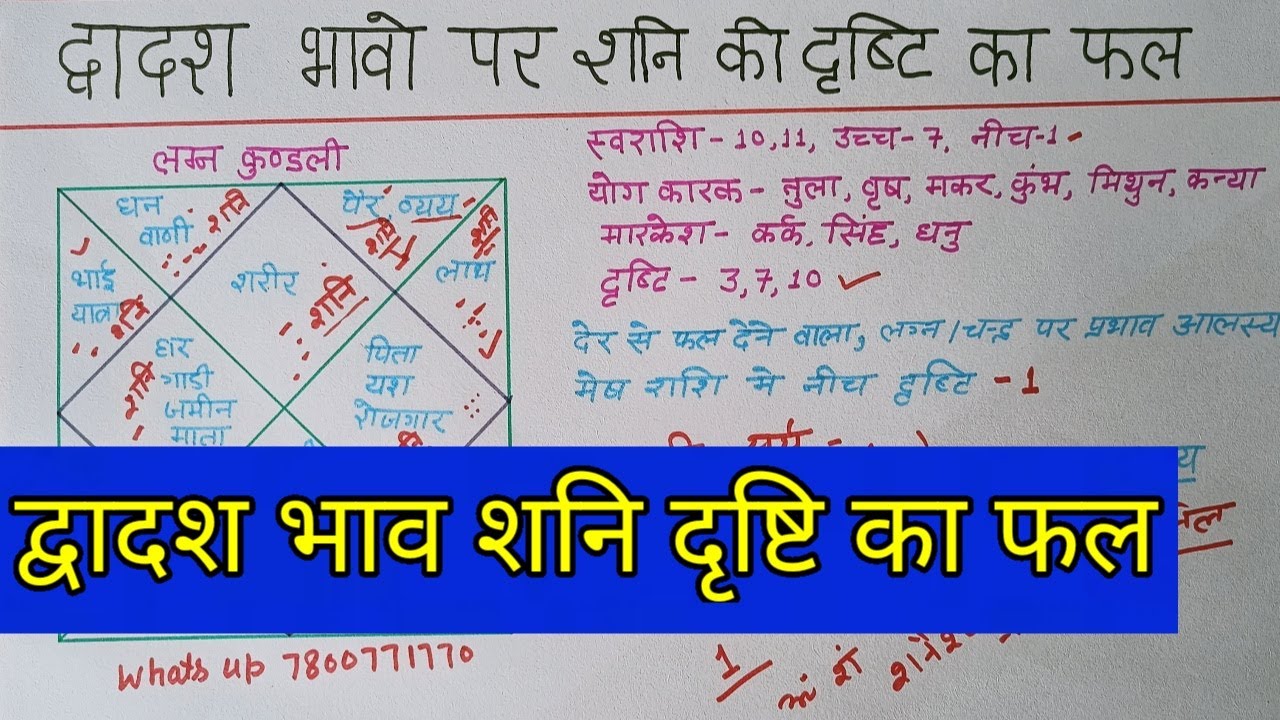 द्वादश भावो पर शनि की दृष्टि का फल
लग्न कुण्डली
धन
वाणी
शनि
पैर, व्यय
शनि
शनि
भाई
यात्रा
शनि
शरीर
शनि
लाभ
हार
गाडी
जमीन
माता
शनि
पिता
यश
रोजगार
स्वराशि - 10,11, उच्च - 7, नीच-1
योग कारक - तुला, वृष, मकर, कुंभ, मिथुन, कन्या
मारकेश - कर्क, सिंह, धनु
दृष्टि - 3,7,10 ✓
देर से फल देने वाला, लग्न/चन्द्र पर प्रभाव आलस्य
मेष राशि मे नीच दृष्टि - 1
द्वादश भाव शनि दृष्टि का फल
Whats up 7800771770
1